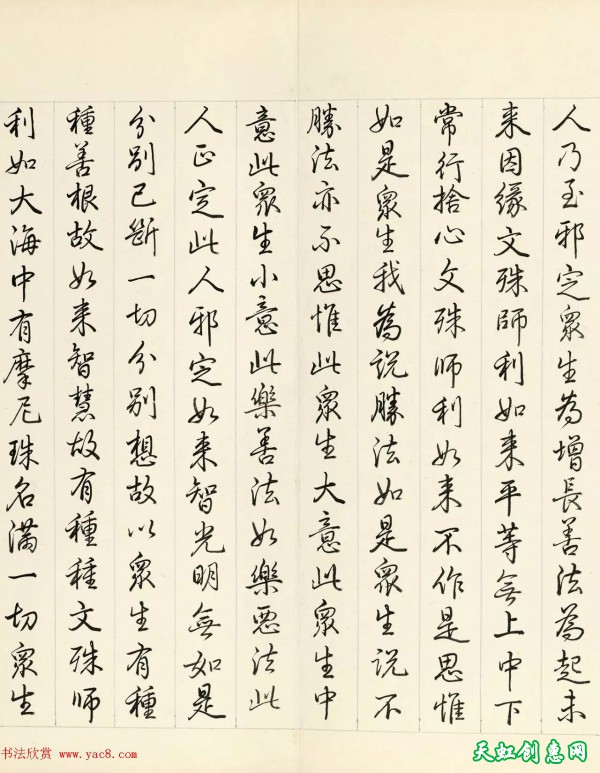 人乃至邪定衆生為增長善法為起未
来因緣文殊師利如来平等無上中下
常行捨心文殊師利如来不作是思惟
如是衆生我為説勝法如是衆生説不
勝法亦不思惟此衆生大意此衆生中
意此衆生小意此樂善法如樂惡法此
人正定此人邪定如来智光明無如是
分別已斷一切分別想故以衆生有種
種善根故如来智慧故有種種文殊師
利如大海中有摩尼珠名滿一切衆生
书法欣赏 www.yac8.com
天虹创惠网